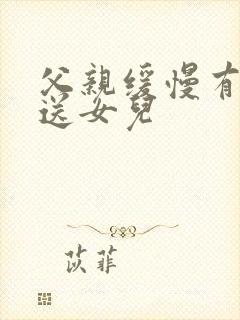 父親缓慢有
送女兒
苡菲